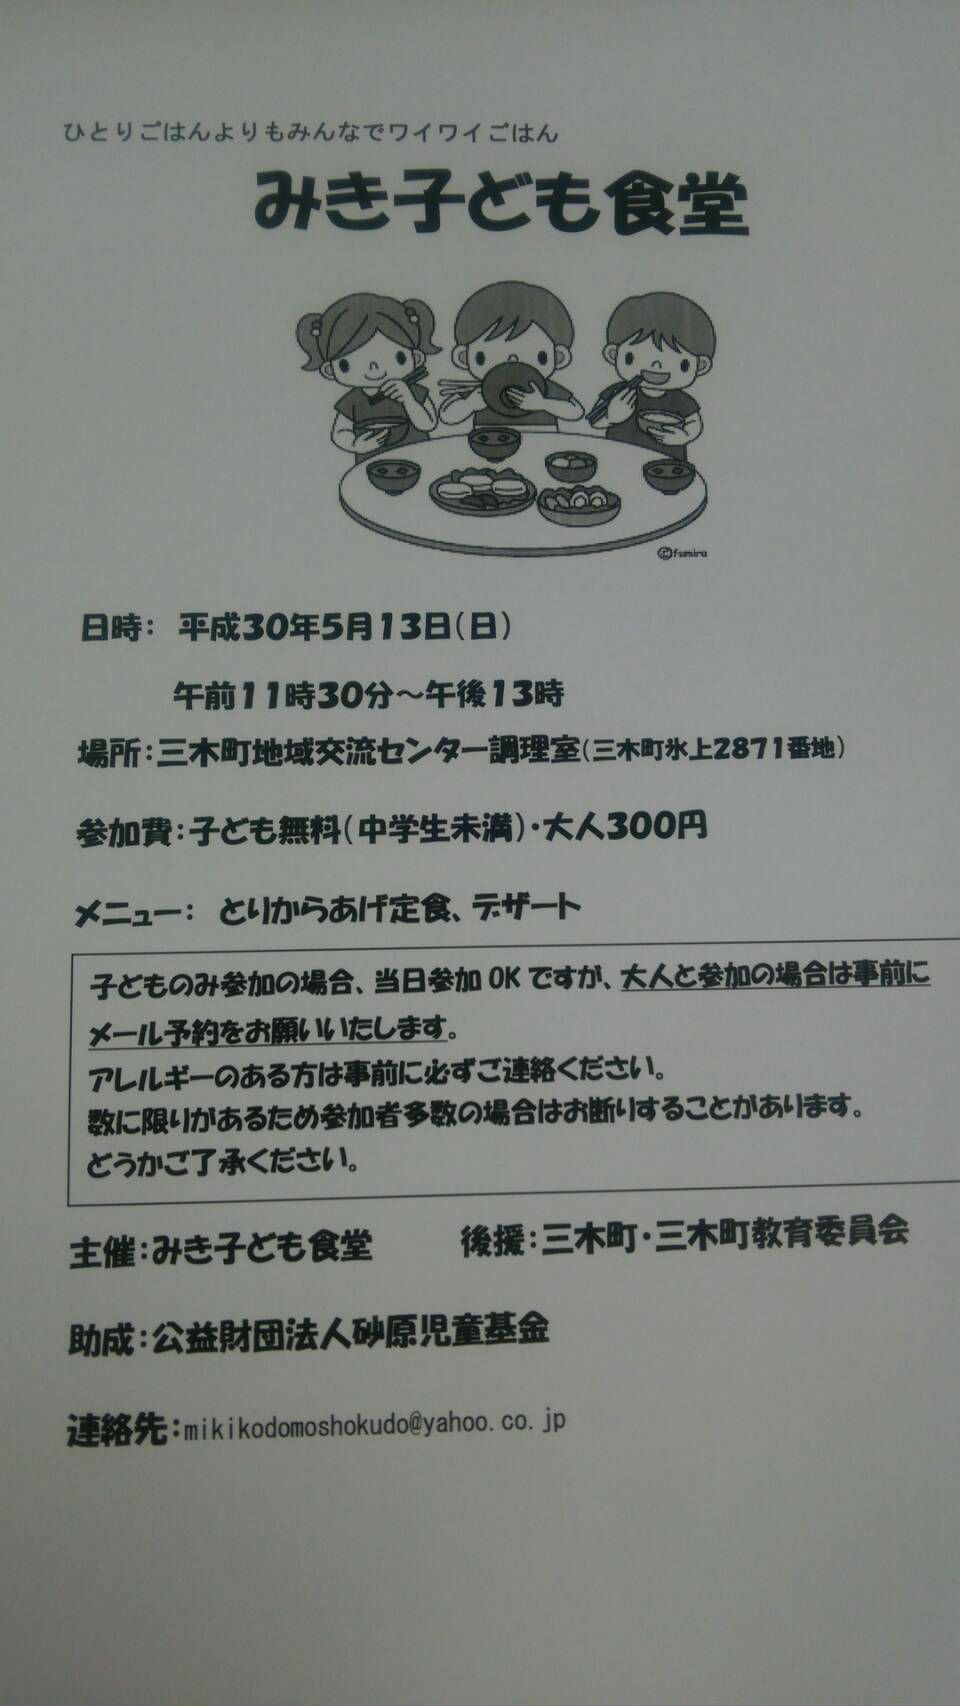 ひとりごはんよりもみんなでワイワイごはん
みき子ども食堂
©fumira
日時： 平成30年5月13日（日）
午前11時30分～午後13時
場所：三木町地域交流センター調理室（三木町氷上2871番地）
参加費：子ども無料（中学生未満）・大人300円
メニュー： とりからあげ定食、デザート
子どものみ参加の場合、当日参加 OK ですが、大人と参加の場合は事前に
メール予約をお願いいたします。
アレルギーのある方は事前に必ずご連絡ください。
数に限りがあるため参加者多数の場合はお断りすることがあります。
どうかご了承ください。
主催：みき子ども食堂 後援：三木町・三木町教育委員会
助成：公益財団法人砂原児童基金
連絡先：mikikodomoshokudo@yahoo.co.jp